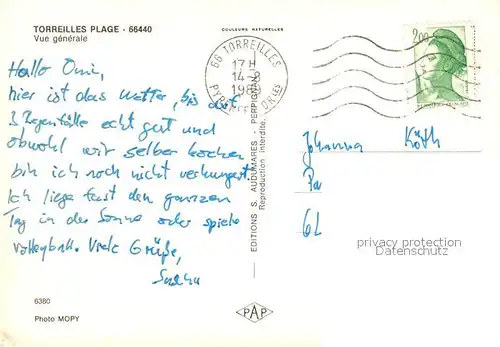 TORREILLES PLAGE - 66440
Vue générale
COULEURS NATURELLES
Hallo Omi,
hier ist das Wetter, bis auf
3 Regenfälle echt gut und
obwohl wir selber kochen
bin ich noch nicht verhungert.
Ich liege fast den ganzen
Tag in der Sonne oder spiele
Volleyball. Viele Grüße,
Sascha
6380
Photo MOPY
EDITIONS S. AUDUMARES - PERPIGNAN
Reproduction Interdite.
66 TORREILLES
17 H
14-8
2,00
Johanna Köth
62
privacy protection
Datenschutz
PAP